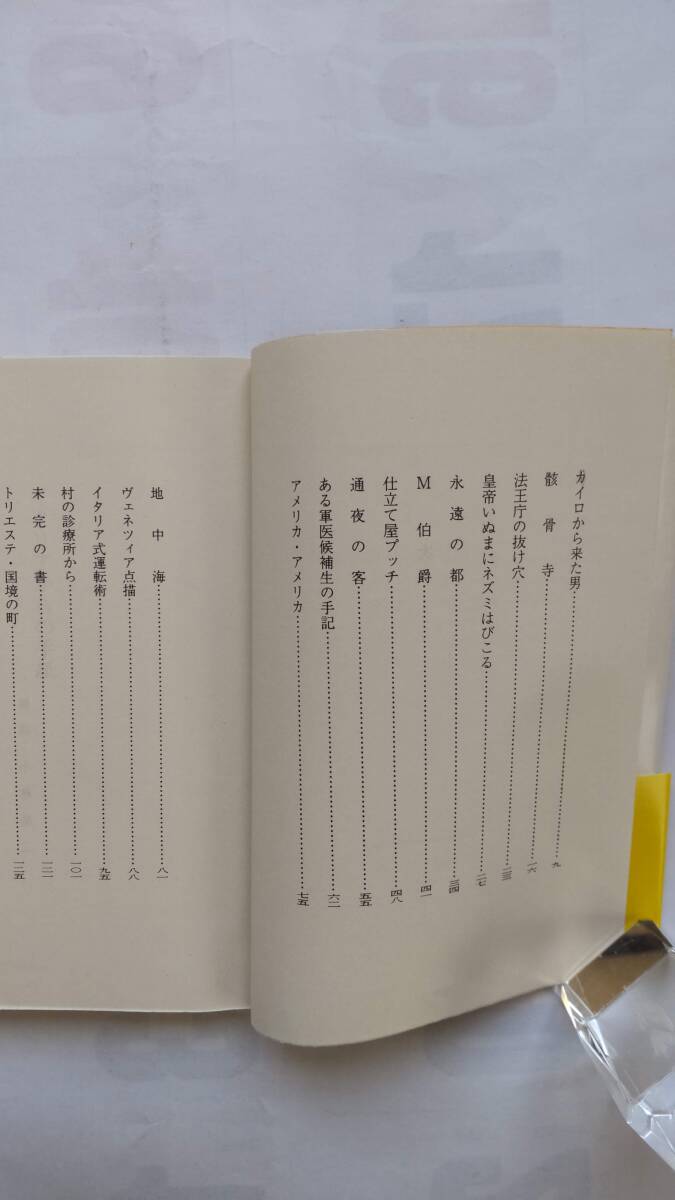 カイロから来た男……九
骸骨寺……一六
法王庁の抜け穴……二三
皇帝いぬまにネズミはびこる……二七
永遠の都……三四
M伯爵……四一
仕立て屋プッチ……四八
通夜の客……五五
ある軍医候補生の手記……六二
アメリカ・アメリカ……七五
地中海……八一
ヴェネツィア点描……八八
イタリア式運転術……九五
村の診療所から……一〇一
未完の書……一二一
トリエステ・国境の町……一二五